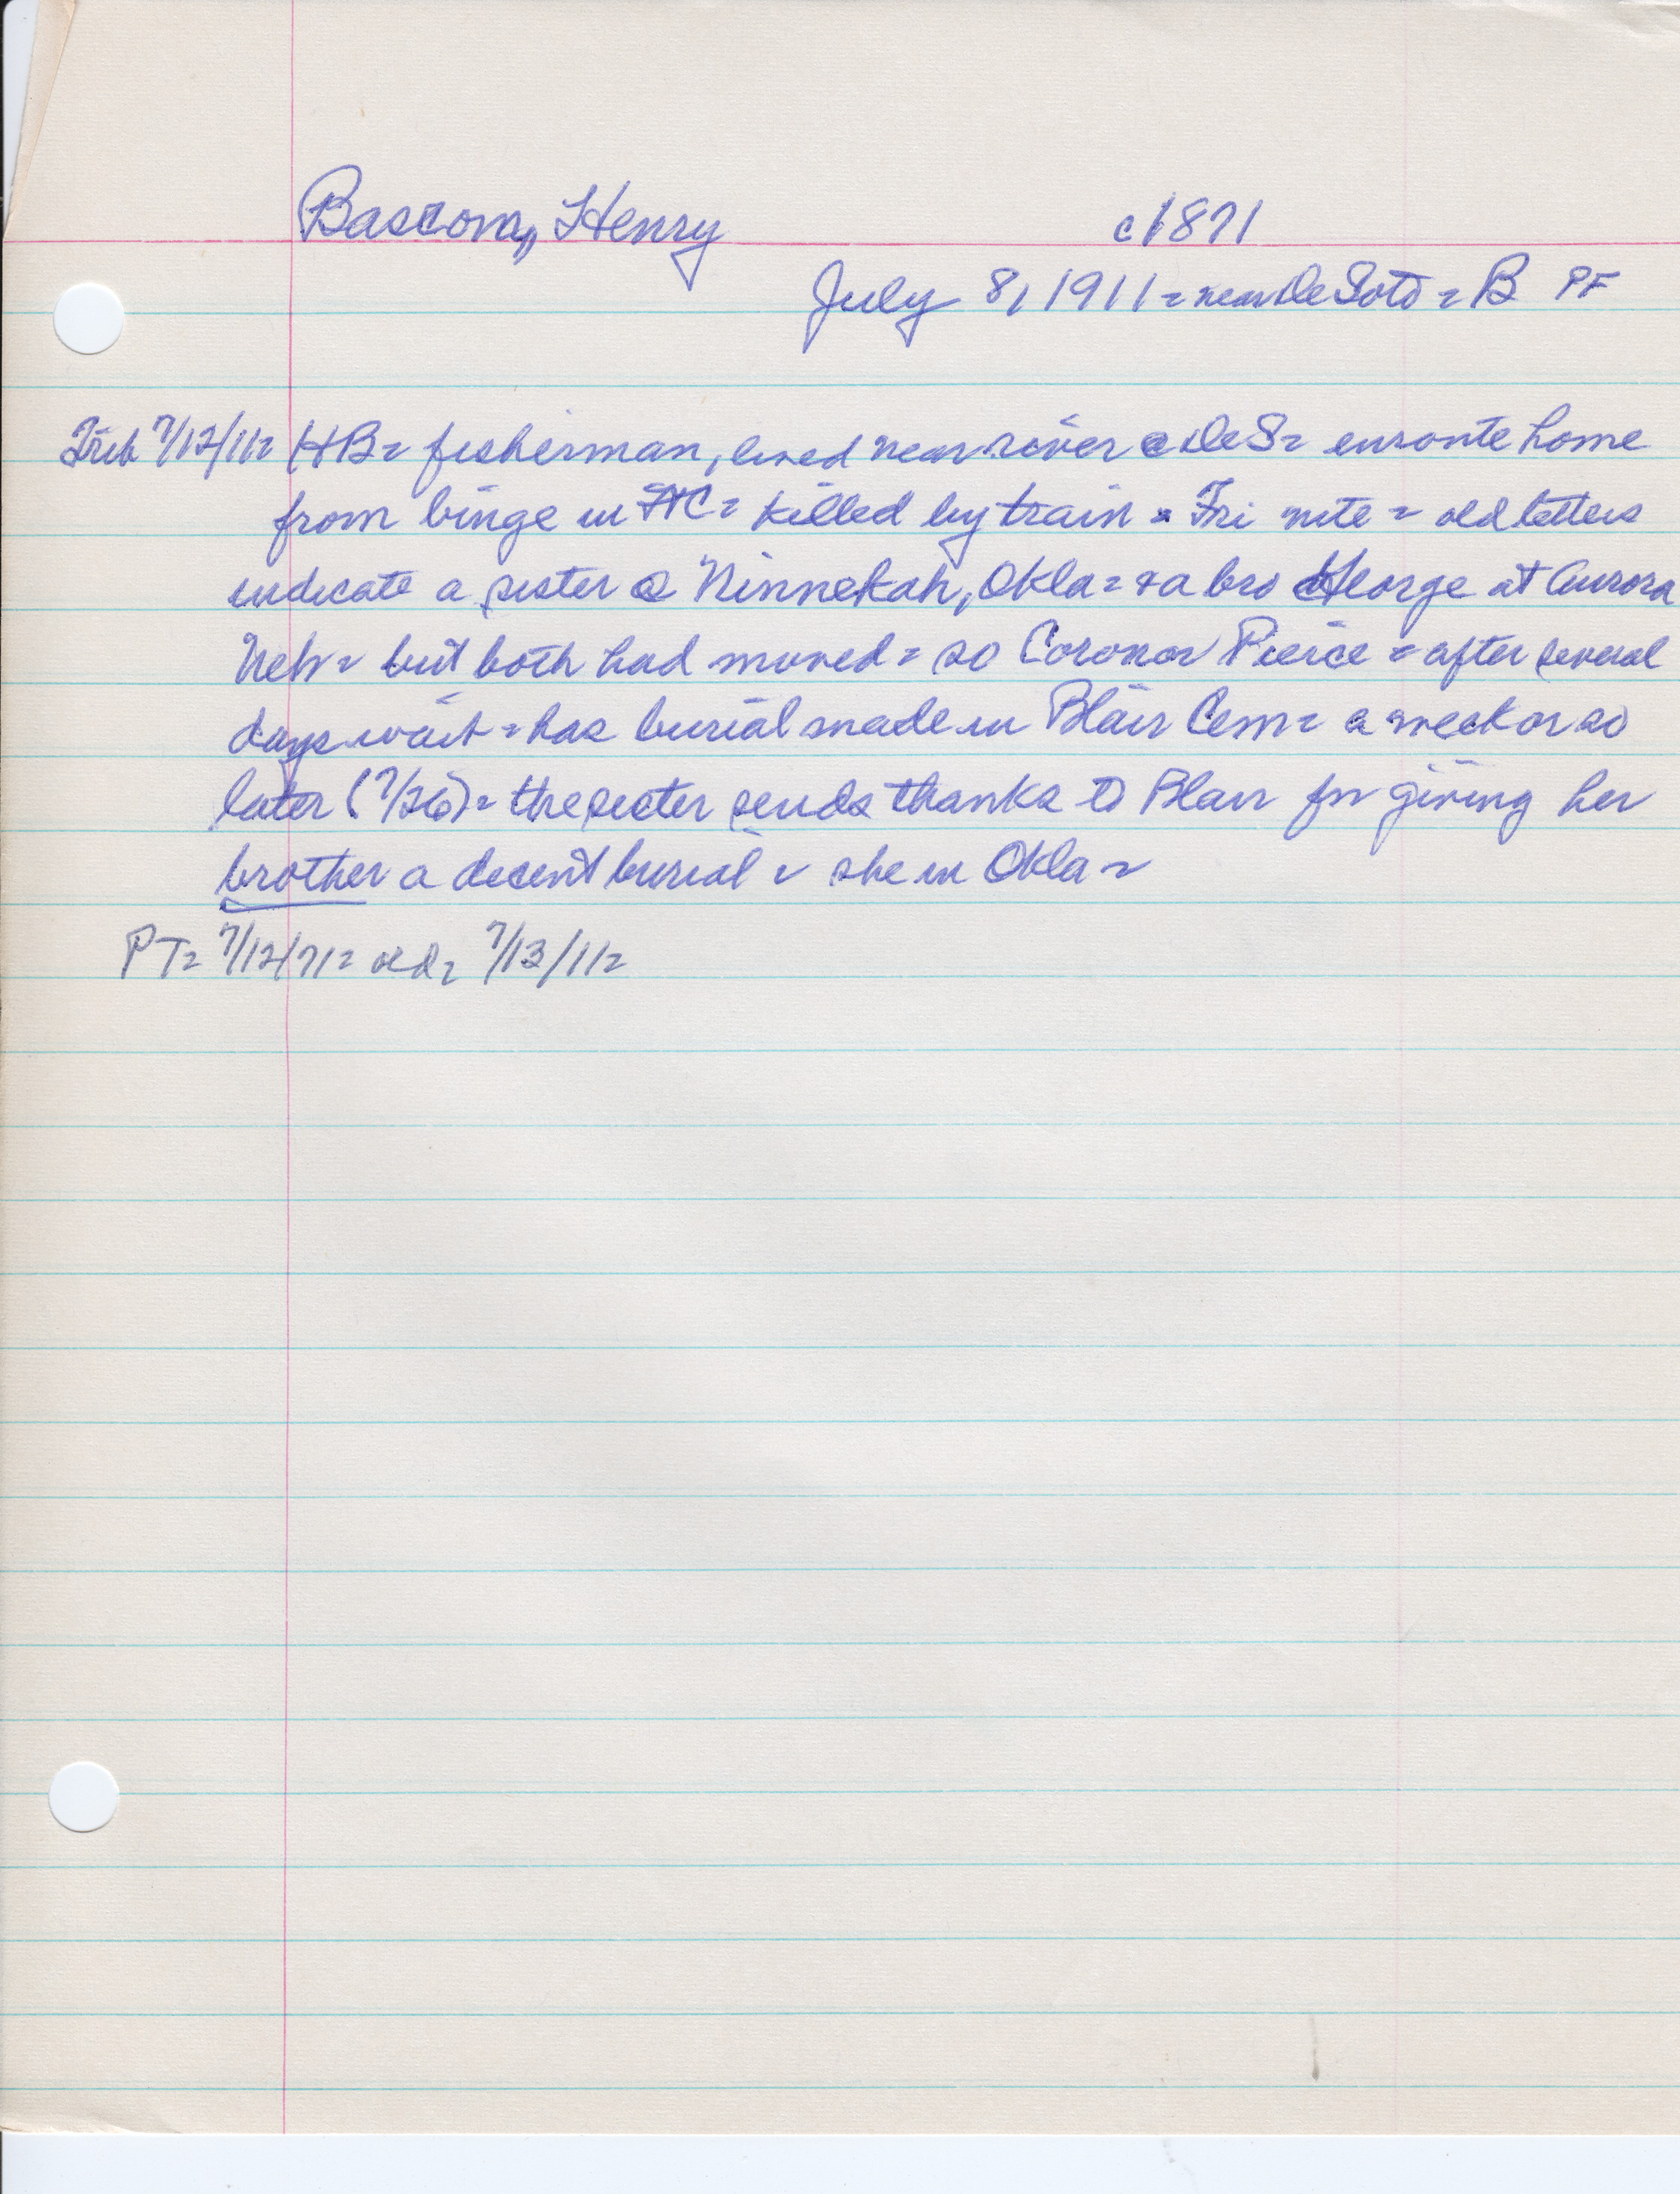 Bascom, Henry c1871
July 8, 1911 = near De Soto = B PF
Trib 7/12/11= HB= fisherman, lived near river @ DeS= enroute home
from binge in FtC= killed by train = Fri nite = old letters
indicate a sister @ Ninnekah, Okla= & a bro George at Aurora
Neb= but both had moved= so Coronor Pierce = after several
days wait = has burial made in Blair Cem= a week or so
later (7/26)= the sister sends thanks to Blair for giving her
brother a decent burial = she in Okla =
PT= 7/12/71= old= 7/13/11=